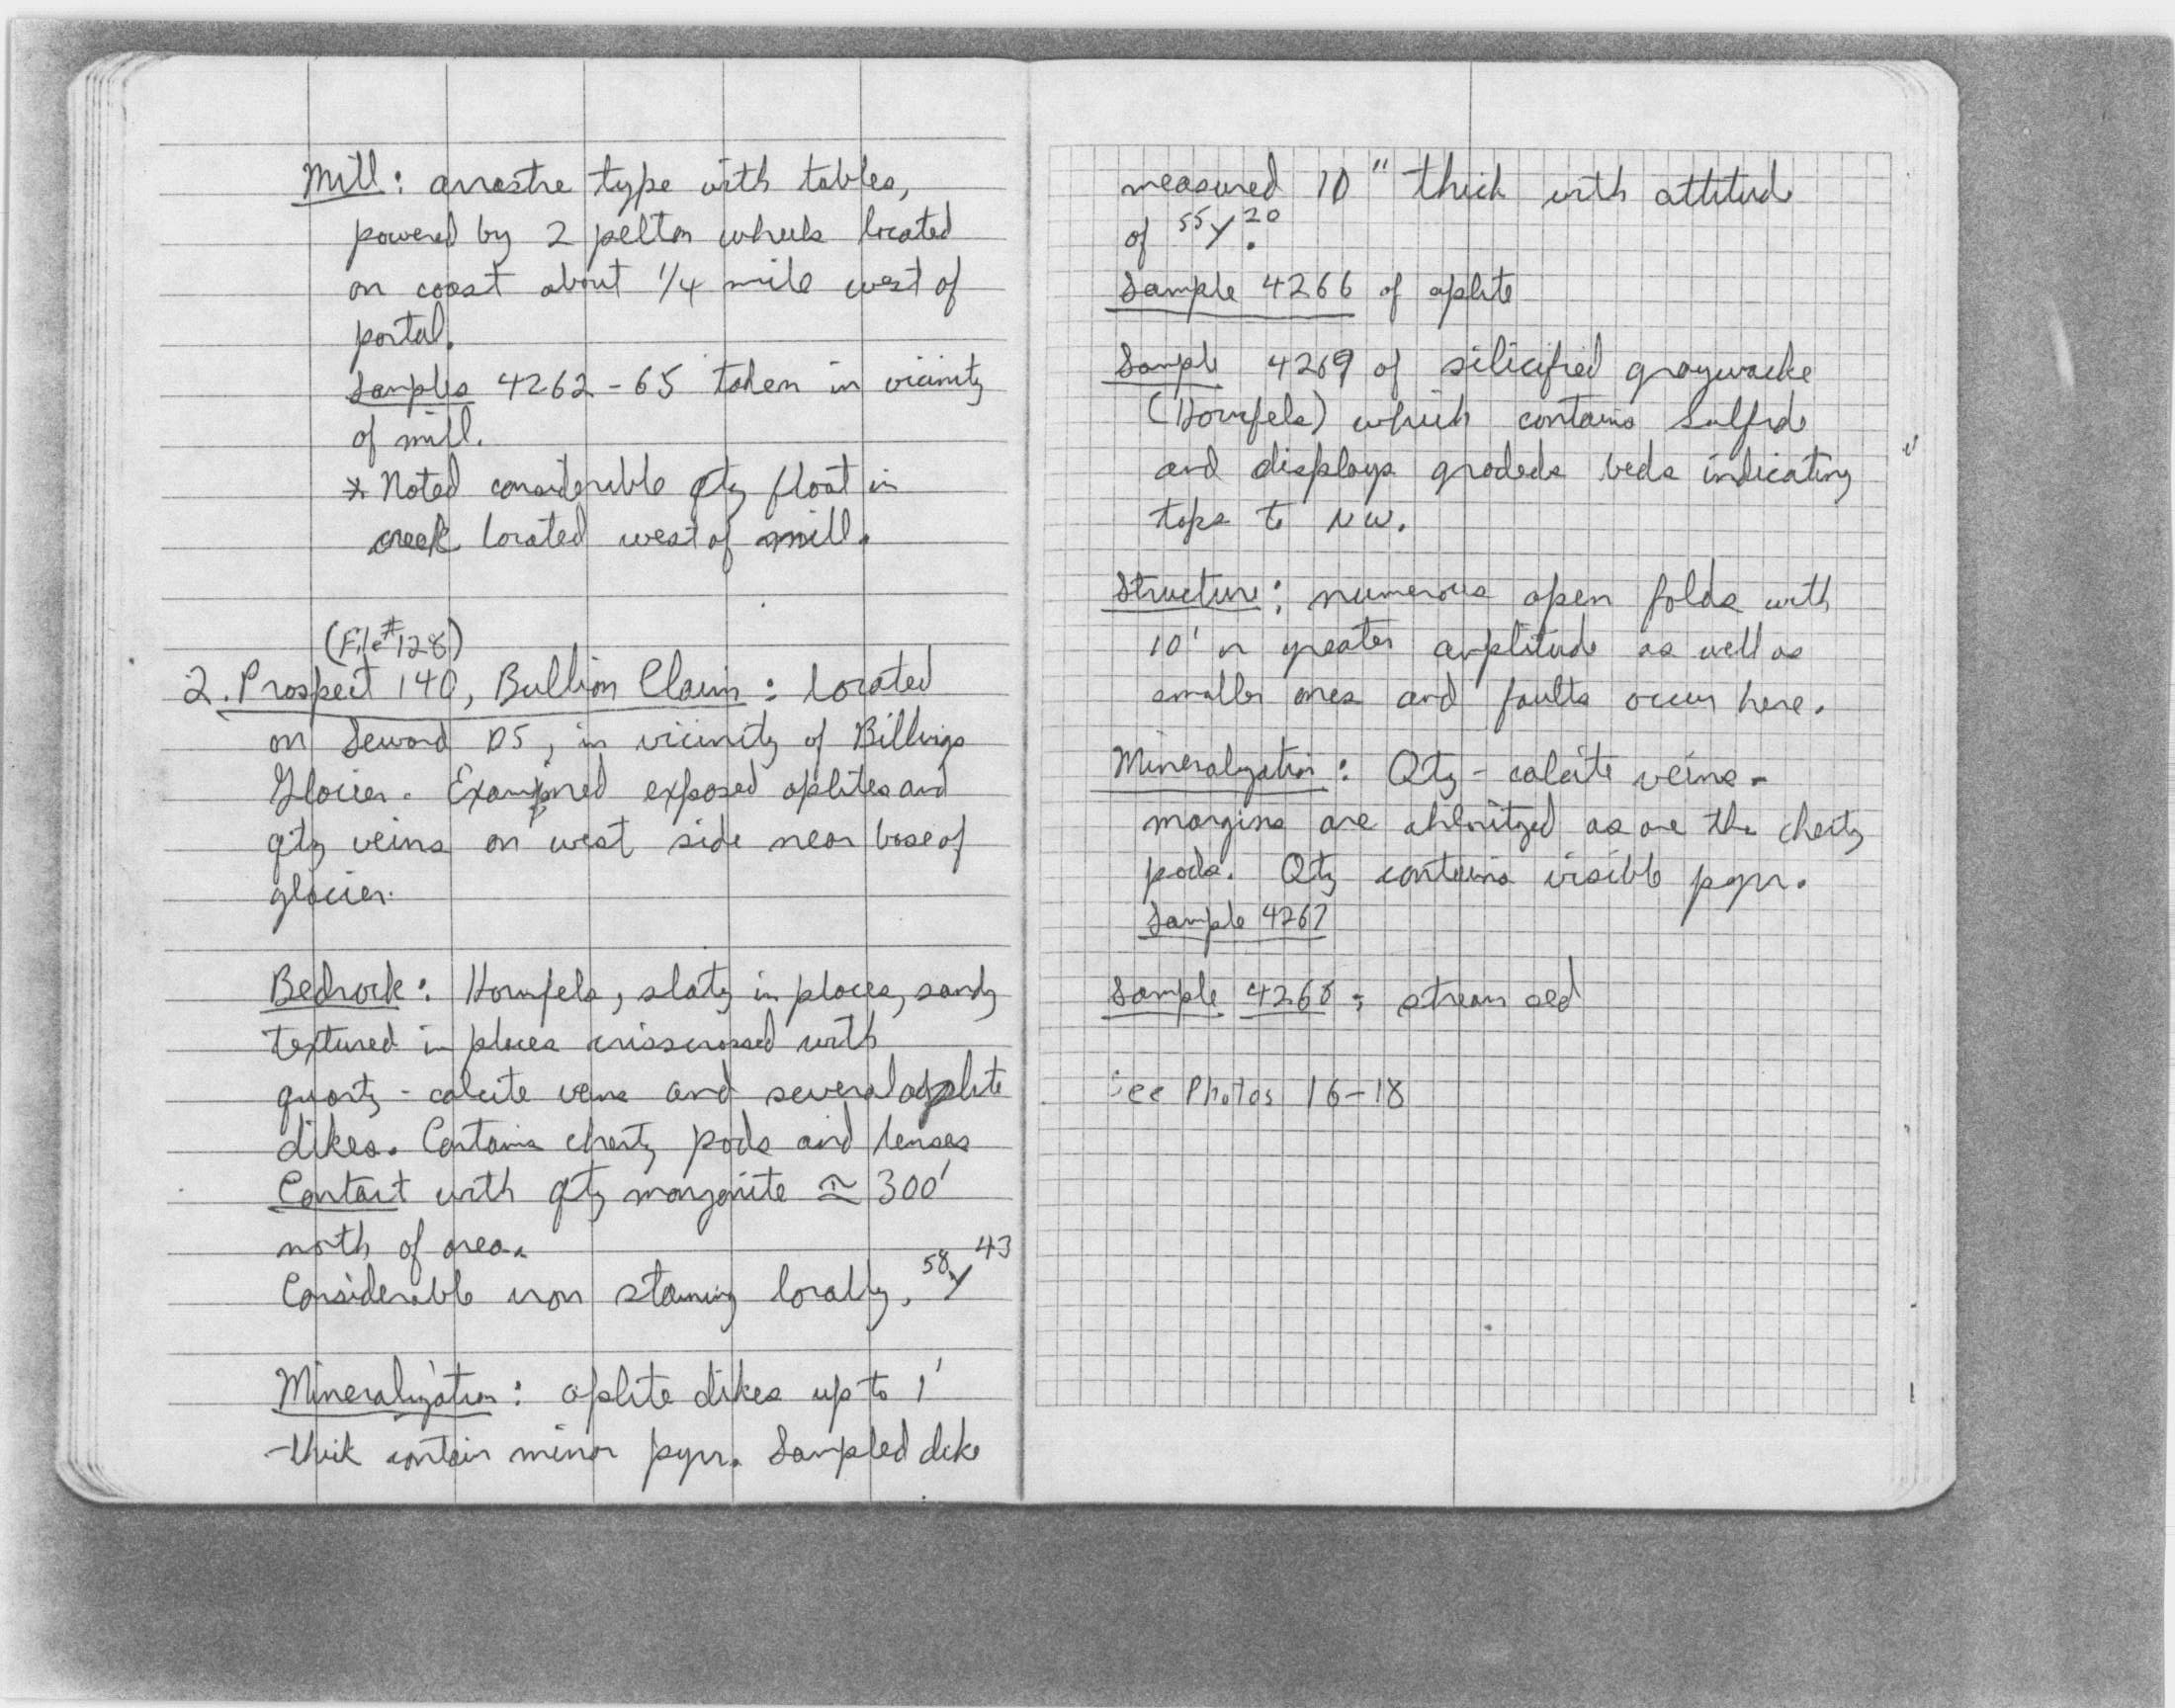 Mill: arrastre type with tables,
powered by 2 pelton wheels located
on coast about 1/4 mile west of
portal.
Samples 4262-65 taken in vicinity
of mill.
* Noted considerable qtz float in
creek located west of mill.
(File #128)
2. Prospect 140, Bullion Claim: located
on Seward D5, in vicinity of Billings
Glacier. Examined exposed aplites and
qtz veins on west side near base of
glacier.
Bedrock: Hornfels, slaty in places, sandy
textured in places crisscrossed with
quartz-calcite veins and several aplite
dikes. Contains cherty pods and lenses
Contact with qtz monzonite ≃ 300'
north of area.
Considerable iron staining locally. 58 Y 43
Mineralization: aplite dikes up to 1'
thick contain minor pyrr. Sampled dike
measured 10" thick with attitude
of 55 Y 20.
Sample 4266 of aplite
Sample 4269 of silicified graywacke
(Hornfels) which contains sulfide
and displays gradeds beds indicating
tops to NW.
Structure: numerous open folds with
10' or greater amplitude as well as
smaller ones and faults occur here.
Mineralization: Qtz-calcite veins.
margins are chloritized as are the cherty
pods. Qtz contains visible pyrr.
Sample 4267
Sample 4268: stream sed
See Photos 16-18